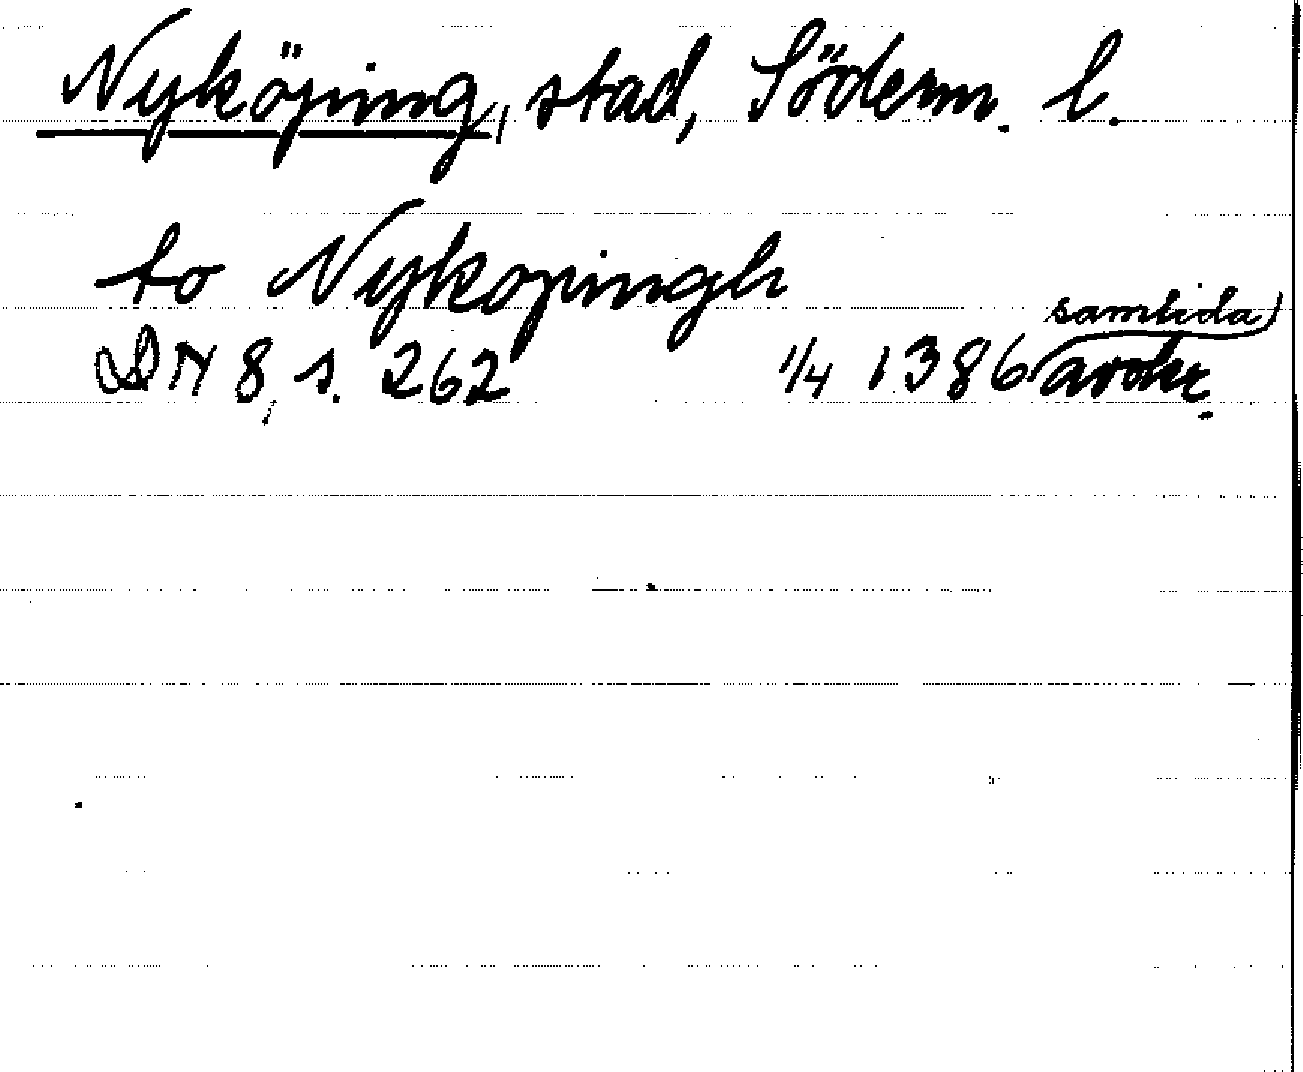 Nyköping, stad, Söderm. l.
to Nykopingh
samtida
DN 8, s. 262 1/4 1386 avskr.